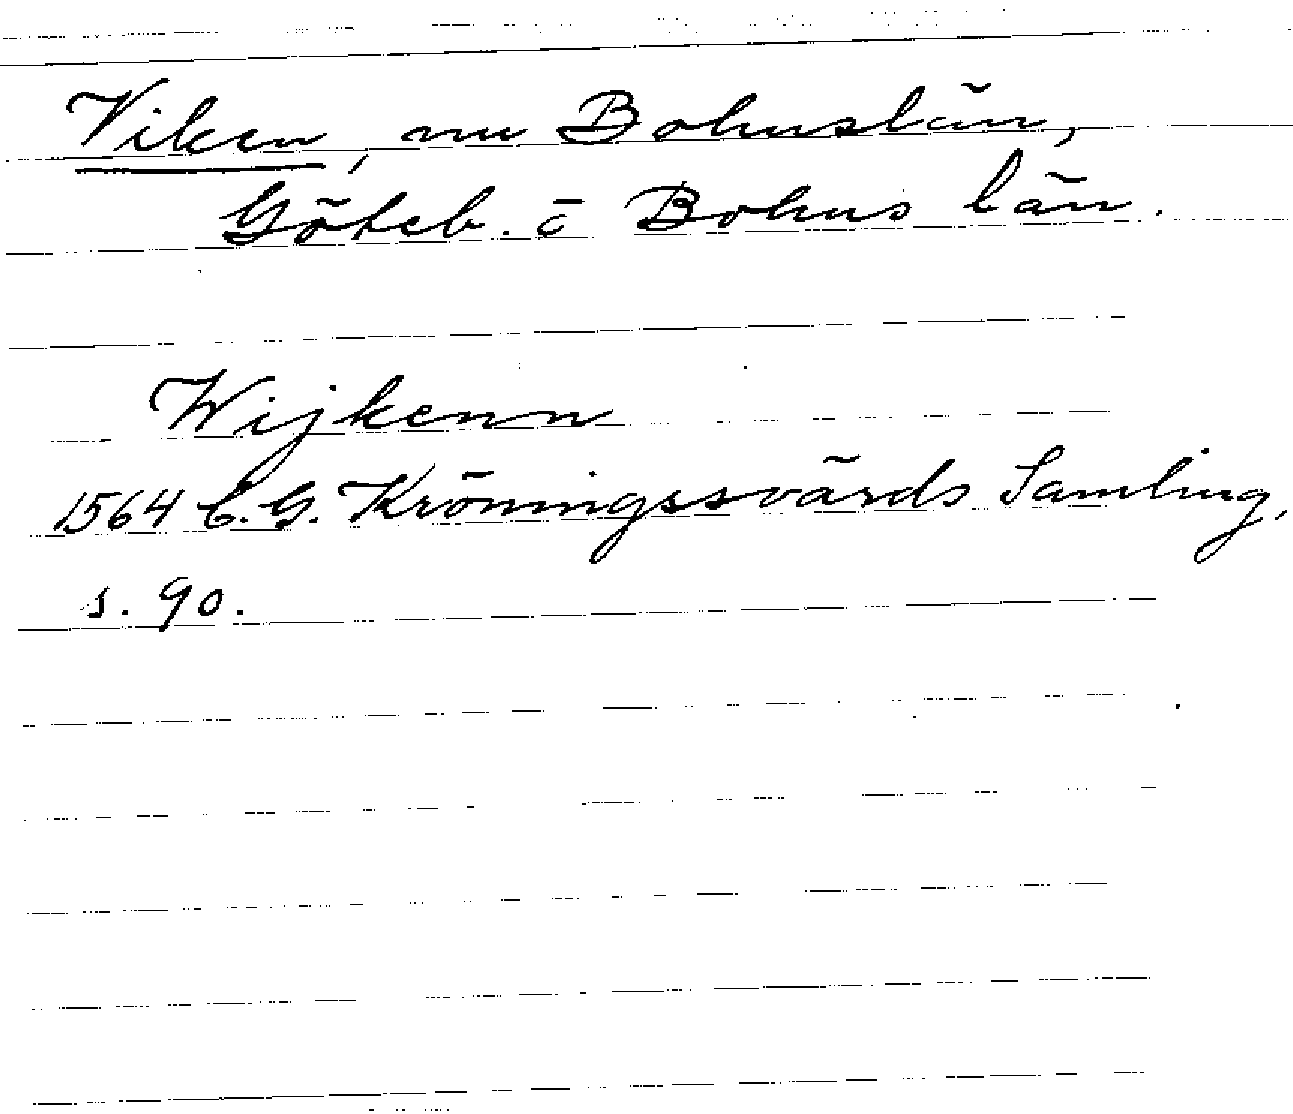 Viken, nu Bohuslän,
Göteb. o Bohus län.
Wijkenn
1564 C. G. Kröningssvärds Samling,
s. 90.